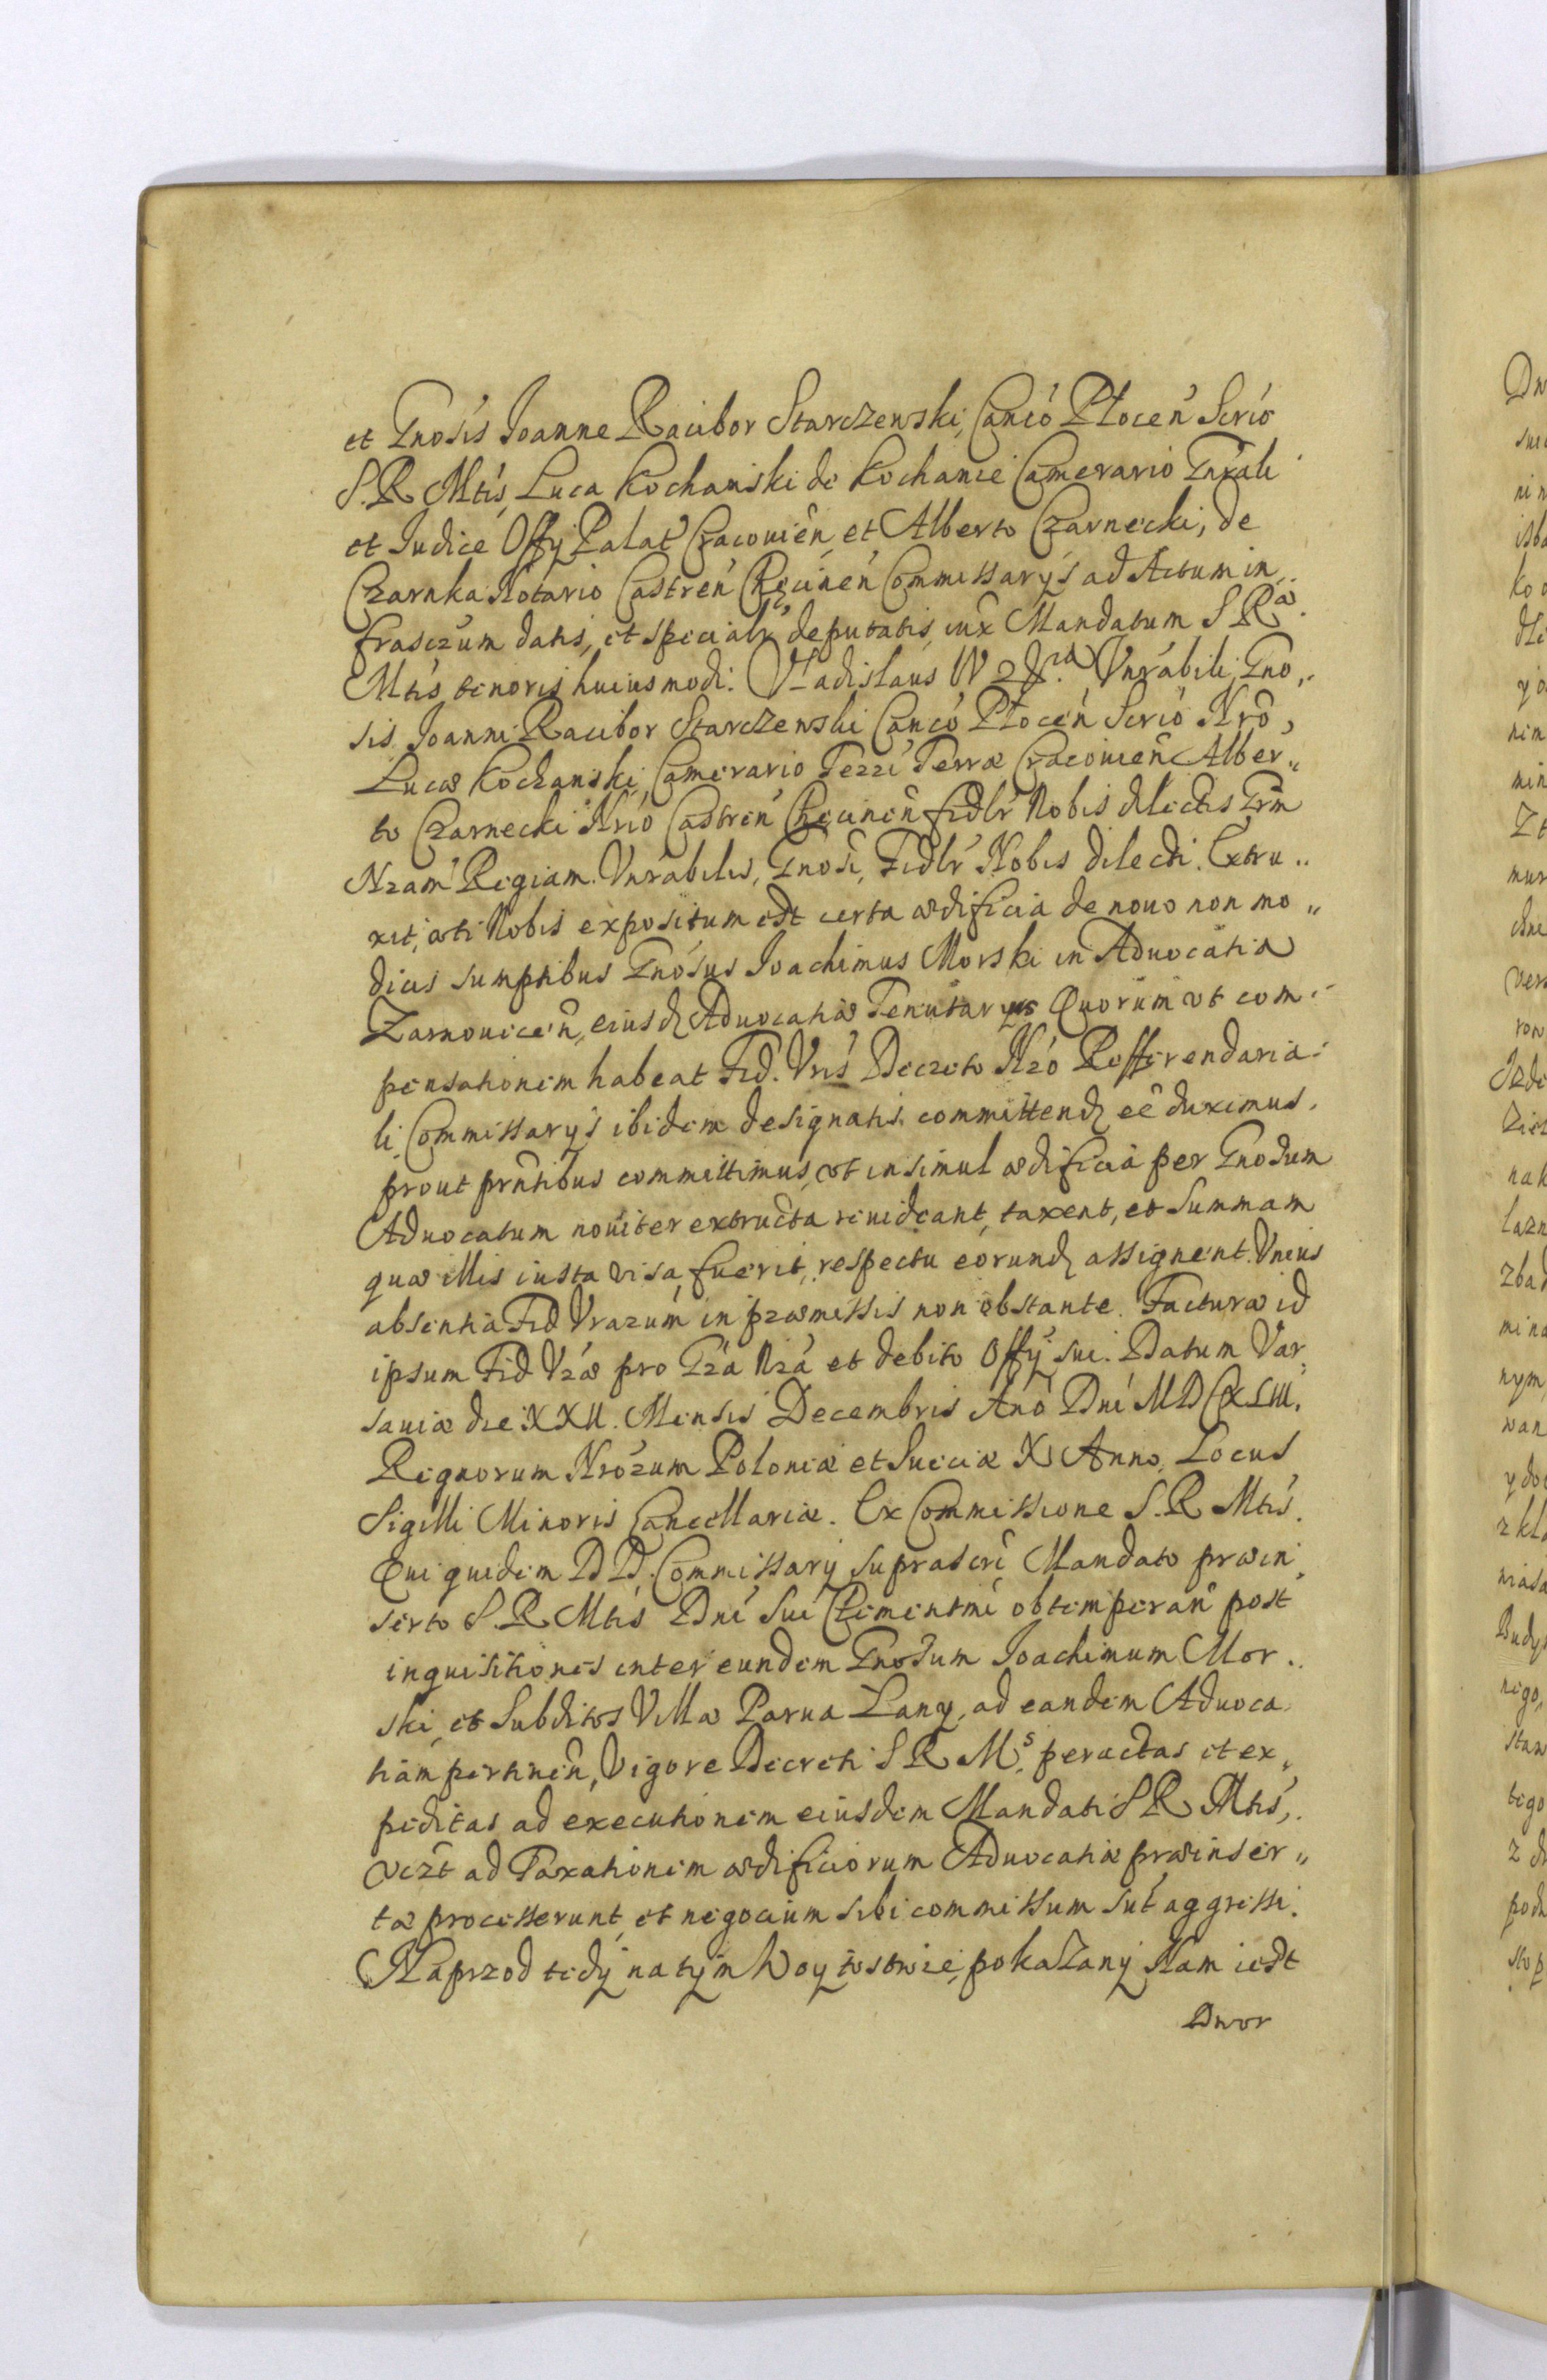 et Gnosis Joanne Racibor Starczewski, Canco Plocen Scrio
S. R. Mtis, Luca Kochanski de Kochanie Camerario Gnrali
et Judice Offy Palat Cracouien, et Alberto Czarnecki, de
Czarnka Notario Castren Chęcinen Commissarys ad Actum in„
frasczum datis, et specialr deputatis, iux Mandatum S. Ræ.
Mtis tenoris huiusmodi. Vladislaus IV Vnrabili, Gno„
sis Joanni Racibor Starczewski Canco Plocen Scrio Nro,
Lucæ Kochanski, Camerario Terri Terræ Cracouien Alber„
to Czarnecki Nrio Castren Chęcinen fidlr Nobis dilectis Grm
Nram Regiam. Vnrabilis, Gnosi, Fidlr Nobis dilecti. Extru„
xit, uti Nobis expositum est certa ædificia de nouo non mo„
dicis sumptibus Gnosus Joachimus Morski in Aduocatia
Zarnouicen, eiusd Aduocatiæ Tenutarius Quorum vt com„
pensationem habeat Fid. Vris Decreto Nro Refferendaria„
li, Commissarys ibidem designatis committend ee duximus.
prout pntibus committimus, vt insimul ædificia per Gnosum
Aduocatum nouiter extructa reuideant, taxent, et Summam
quæ illis iusta visa fuerit, respectu eorund assignent. Vnius
absentia Fid Vrarum in præmissis non obstante. Facturæ id
ipsum Fid Vræ pro Gra Nra et debito Offy sui. Datum Var„
sauiæ die XXII. Mensis Decembris Ano Dni MDCXLIII.
Regnorum Nrorum Poloniæ et Sueciæ XI Anno. Locus
Sigilli Minoris Cancellariæ. Ex Commissione S. R. Mtis.
Qui quidem D D. Commissary suprascri Mandato præin„
serto S. R. Mtis Dni sui Clementmi obtemperan post
inquisitiones inter eundem Gnosum Joachimum Mor„
ski, et Subditos Villæ Parua Lany, ad eandem Aduoca„
tiam pertinen, Vigore Decreti S R Ms. peractas et ex„
peditas ad executionem eiusdem Mandati S R Mtis,
vczt ad Taxationem ædificiorum Aduocatiæ præinser„
tæ processerunt, et negocium sibi commissum sut aggressi.
Naprzod tedy na tym Woytostwie, pokazany Nam iest
Dwor